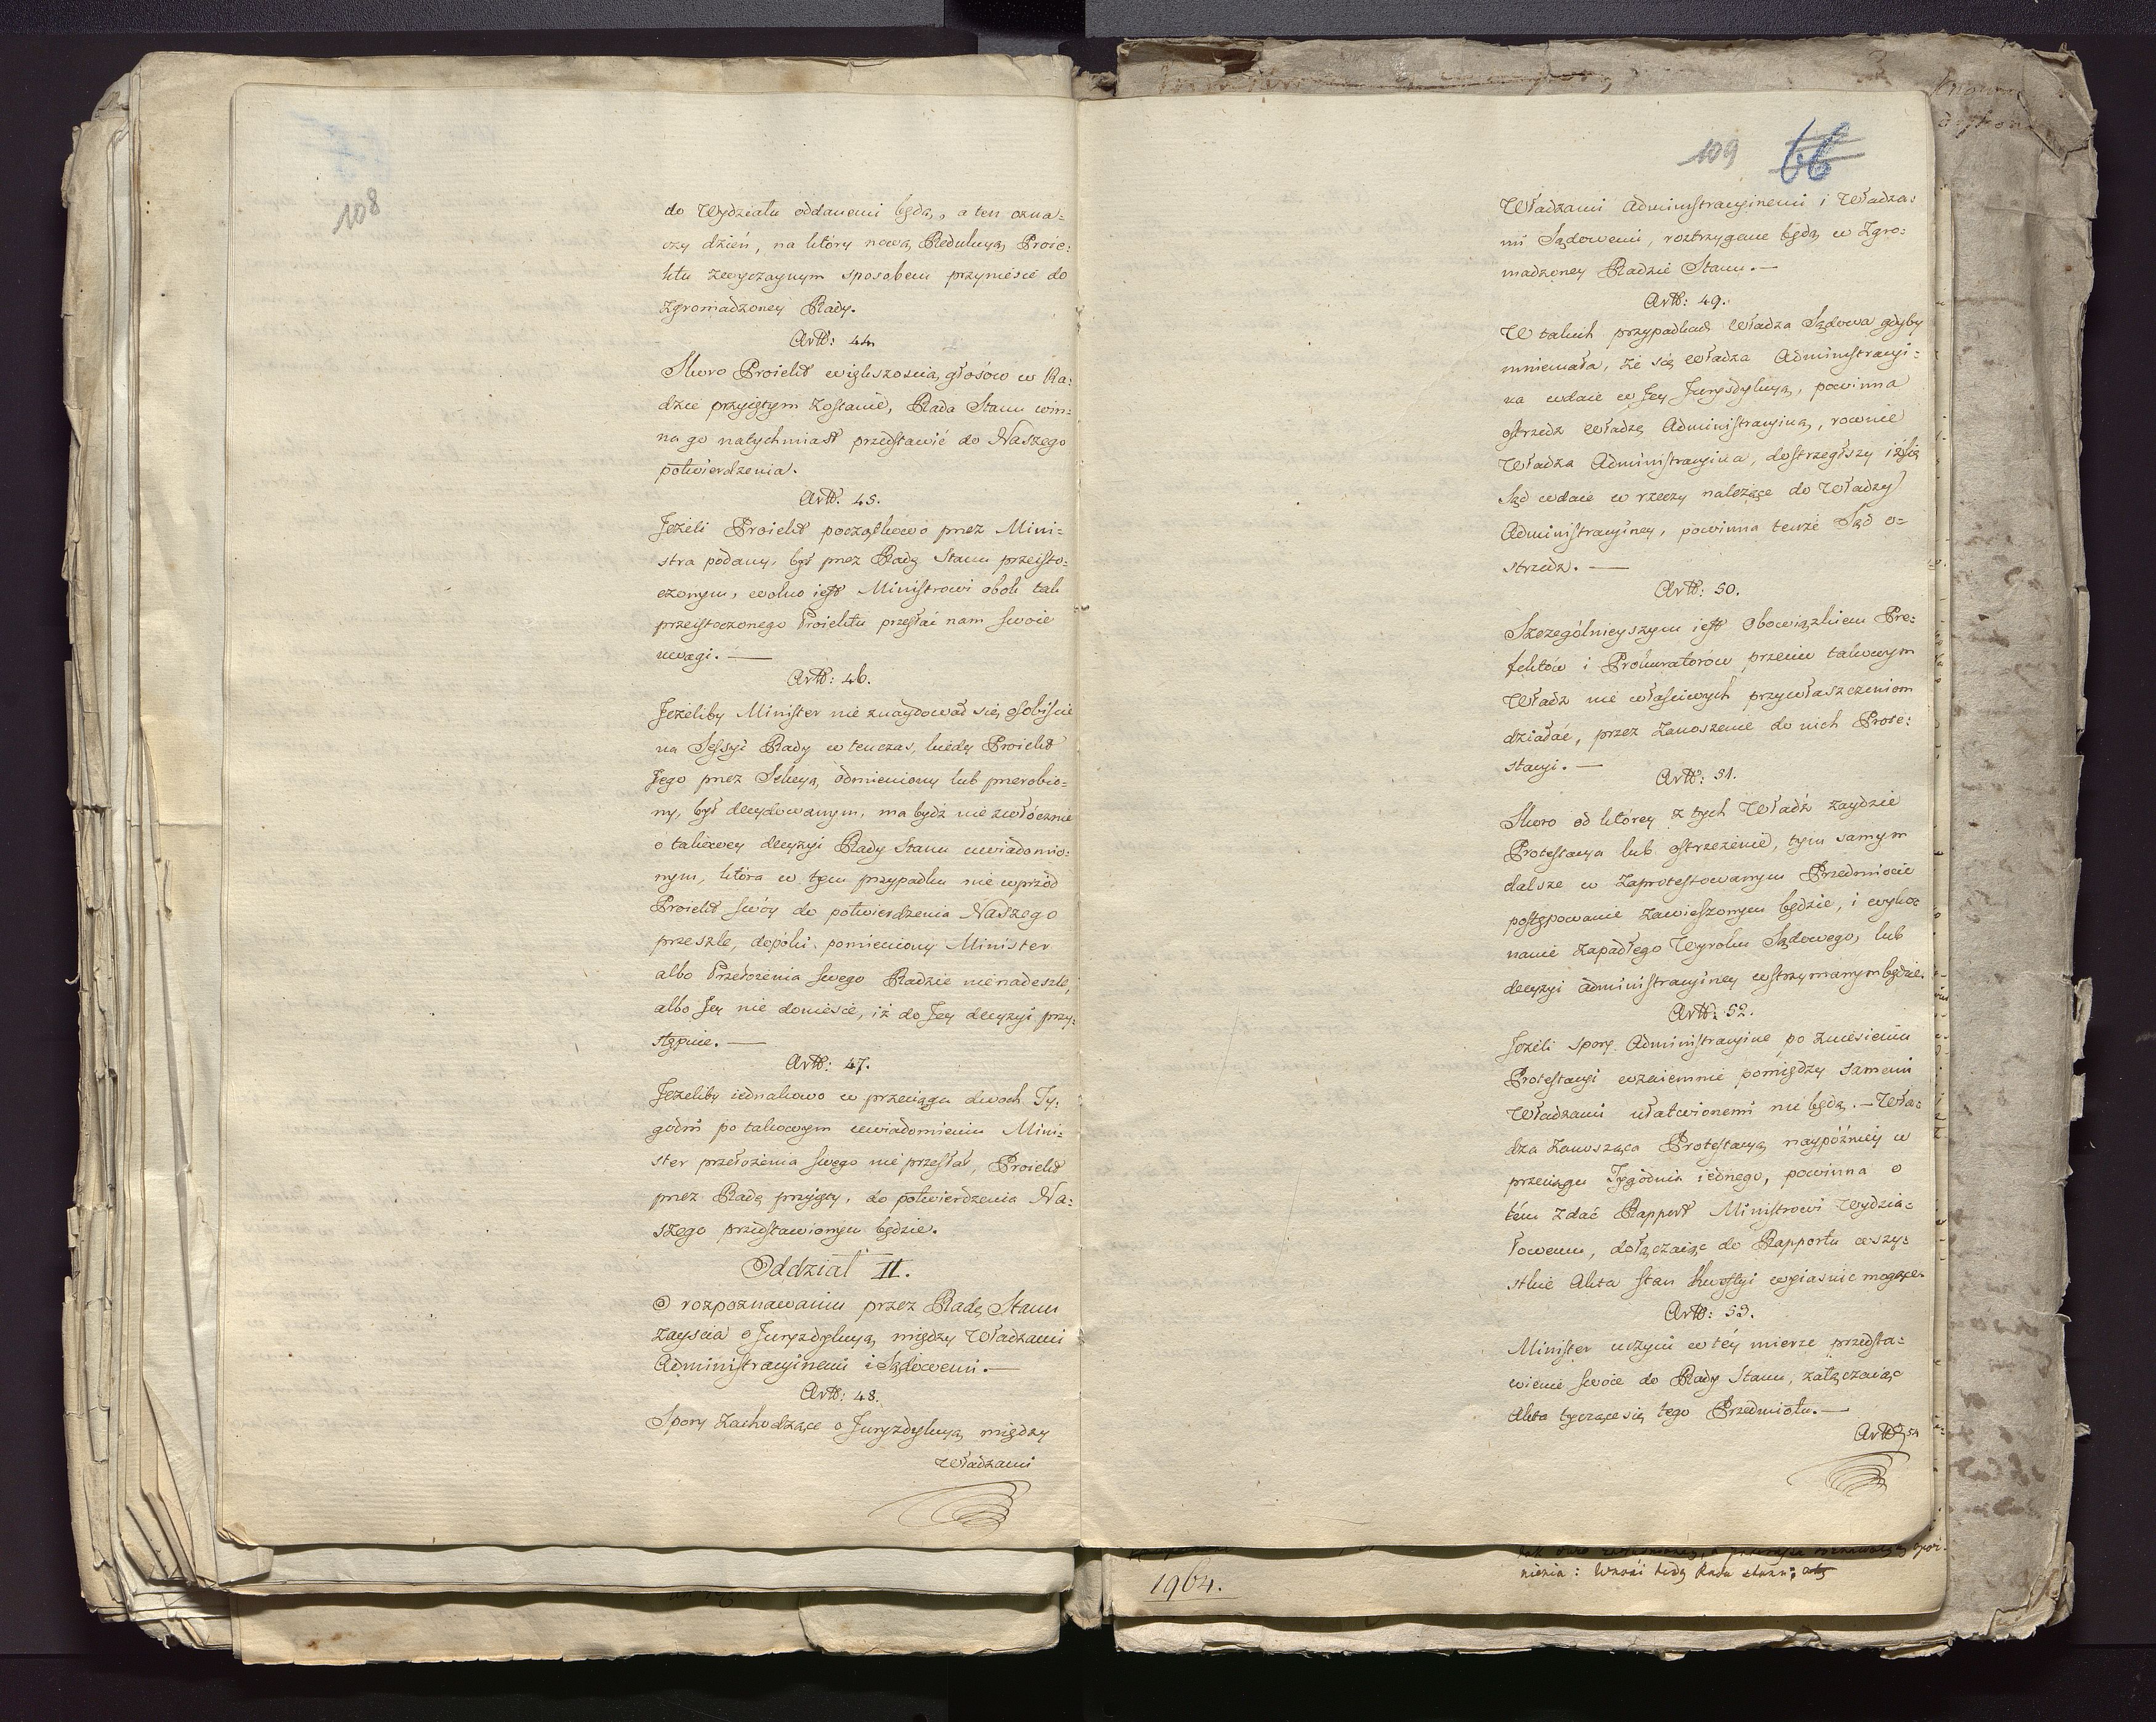 108
do Wydziału oddanemi będą, a ten ozna=
czy dzień, na który nową Redukcyą Proie=
ktu zwyczaynym sposobem przyniesie do
Zgromadzoney Rady.
Artt: 44.
Skoro Proiekt większością głosów w Ra=
dzie przyiętym zostanie, Rada Stanu win=
na go natychmiast przedstawić do Naszego
potwierdzenia.
Artt. 45.
Jeżeli Proiekt początkowo przez Mini=
stra podany, był przez Radę Stanu przeisto=
czonym, wolno iest Ministrowi obok tak
przeistoczonego Proiektu przesłać nam swoie
uwagi. —
Artt: 46.
Jeżeliby Minister nie znaydował się osobiście
na Sessyi Rady w tenczas, kiedy Proiekt
Jego przez Sekcyą odmieniony lub przerobio=
ny, był decydowanym, ma bydź nie zwłócznie
o takowey decyzyi Rady Stanu uwiadomio=
nym, która w tym przypadku nie wprzód
Proiekt swóy do potwierdzenia Naszego
prześzle, dopóki pomieniony Minister
albo Przełożenia swego Radzie nienadeszle,
albo Jey nie doniesie, iż do Jey decyzyi przy=
stępuie. —
Artt: 47.
Jeżeliby iednakowo w przeciągu dwoch Ty=
godni po takowym uwiadomieniu Mini=
ster przełożenia swego nie przesłał, Proiekt
przez Radę przyięty, do potwierdzenia Na=
szego przedstawionym będzie.
Oddział II.
O rozpoznawaniu przez Radę Stanu
zayscia o Juryzdykcyą między Władzami
Administracyinemi i Sądowemi. —
Artt: 48.
Spory zachodzące o Juryzdykcyą między
Władzami
109 66
Władzami Administracyinemi i Władza=
mi Sądowemi, roztrzygane będą w Zgro=
madzoney Radzie Stanu. —
Artt: 49.
W takich przypadkach Władza Sądowa gdyby
mniemała, że się Władza Administracyi=
na wdaie w Jey Jurysdykcyą, powinna
ostrzedz Władzę Administracyiną, rownie
Władza Administracyina, dostrzegłszy iż się
Sąd wdaie w rzeczy należące do Władzy
Administracyiney, powinna tenże Sąd o=
strzedz. —
Artt: 50.
Szczególnieyszym iest Obowiązkiem Pre=
fektów i Prokuratorów przeciw takowym
Władz nie właściwych przywłaszczeniom
działać, przez zanoszenie do nich Prote=
stacyi. —
Artt: 51.
Skoro od którey z tych Władz zaydzie
Protestacya lub ostrzeżenie, tym samym
dalsze w zaprotestowanym Przedmiocie
postępowanie zawieszonym będzie, i wyko=
nanie zapadłego Wyroku Sądowego, lub
decyzyi administracyiney wstrzymanym będzie.
Artt: 52.
Jeżeli spory Administracyine po zniesieniu
Protestacyi wzaiemnie pomiędzy samemi
Władzami ułatwionemi nie będą. — Wła=
dza zanosząca Protestacyą naypóźniey w
przeciągu Tygodnia iednego, powinna o
tém zdać Rapport Ministrowi Wydzia=
łowemu, dołączaiąc do Rapportu wszy=
stkie Akta stan kwestyi wyiasnic mogące.
Artt: 53.
Minister uczyni w téy mierze przedsta=
wienie swoie do Rady Stanu, załączaiąc
Akta tyczące się tego Przedmiotu. —
Artt: 54
1964.
nienia: Wnosi tedy Rada stanu;